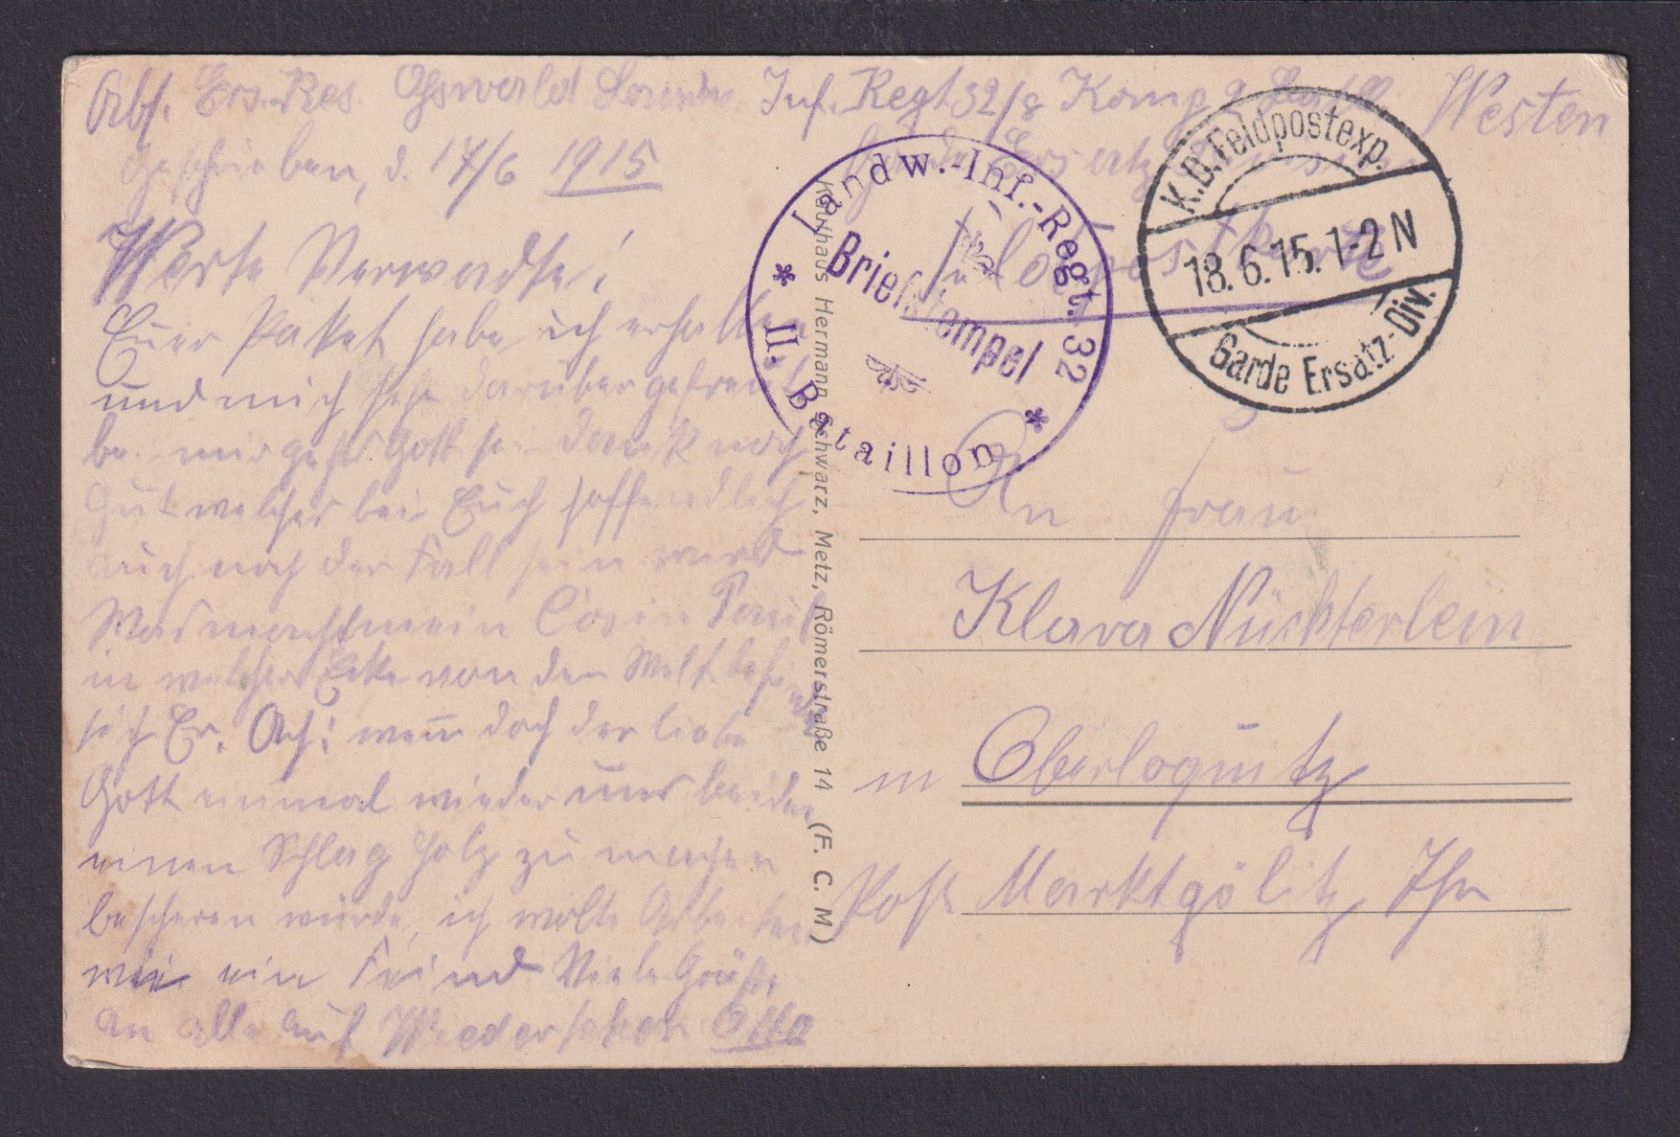 Abs. Ers. Res. Inf. Regt 32/8 Komp Westen
Geschrieben, d. 17/6 1915
Werte Verwandte!
Euer Paket habe ich erhalten
und mich sehr darüber gefreut
bei mir gehts Gott sei dank noch
Gut welches bei Euch hoffendlich
auch noch der Fall sein wird
Was macht mein Cosin Paul
in welcher Ecke von der Welt befindet
sich Er. Ach! wenn doch der liebe
Gott einmal wieder uns beiden
einen Schlag Holz zu machen
bescheren würde, ich wolte Arbeiten
wie ein Feind Viele Grüße
an alle auf Wiedersehen Otto
Landw.-Inf.-Regt. 32
Briefstempel
* II. Bataillon *
K.D. Feldpostexp.
18.6.15. 1-2 N
Garde Ersatz-Div.
Kaufhaus Hermann Schwarz, Metz, Römerstraße 14 (F. C. M)
An Frau
Klara Nüchterlein
in Oberloquitz
Post Marktgölitz Thr